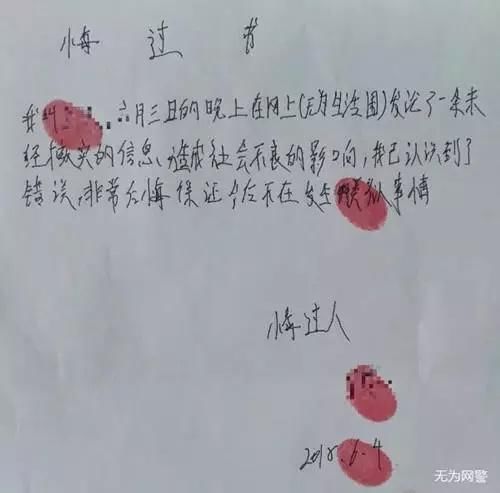 悔过书
我叫 六月三日的晚上在网上(无为生活圈)发论了一条未
经核实的信息、造成社会不良的影响,我已认识到了
错误,非常后悔保证今后不在发生类似事情
悔过人
2018.6.4
无为网警